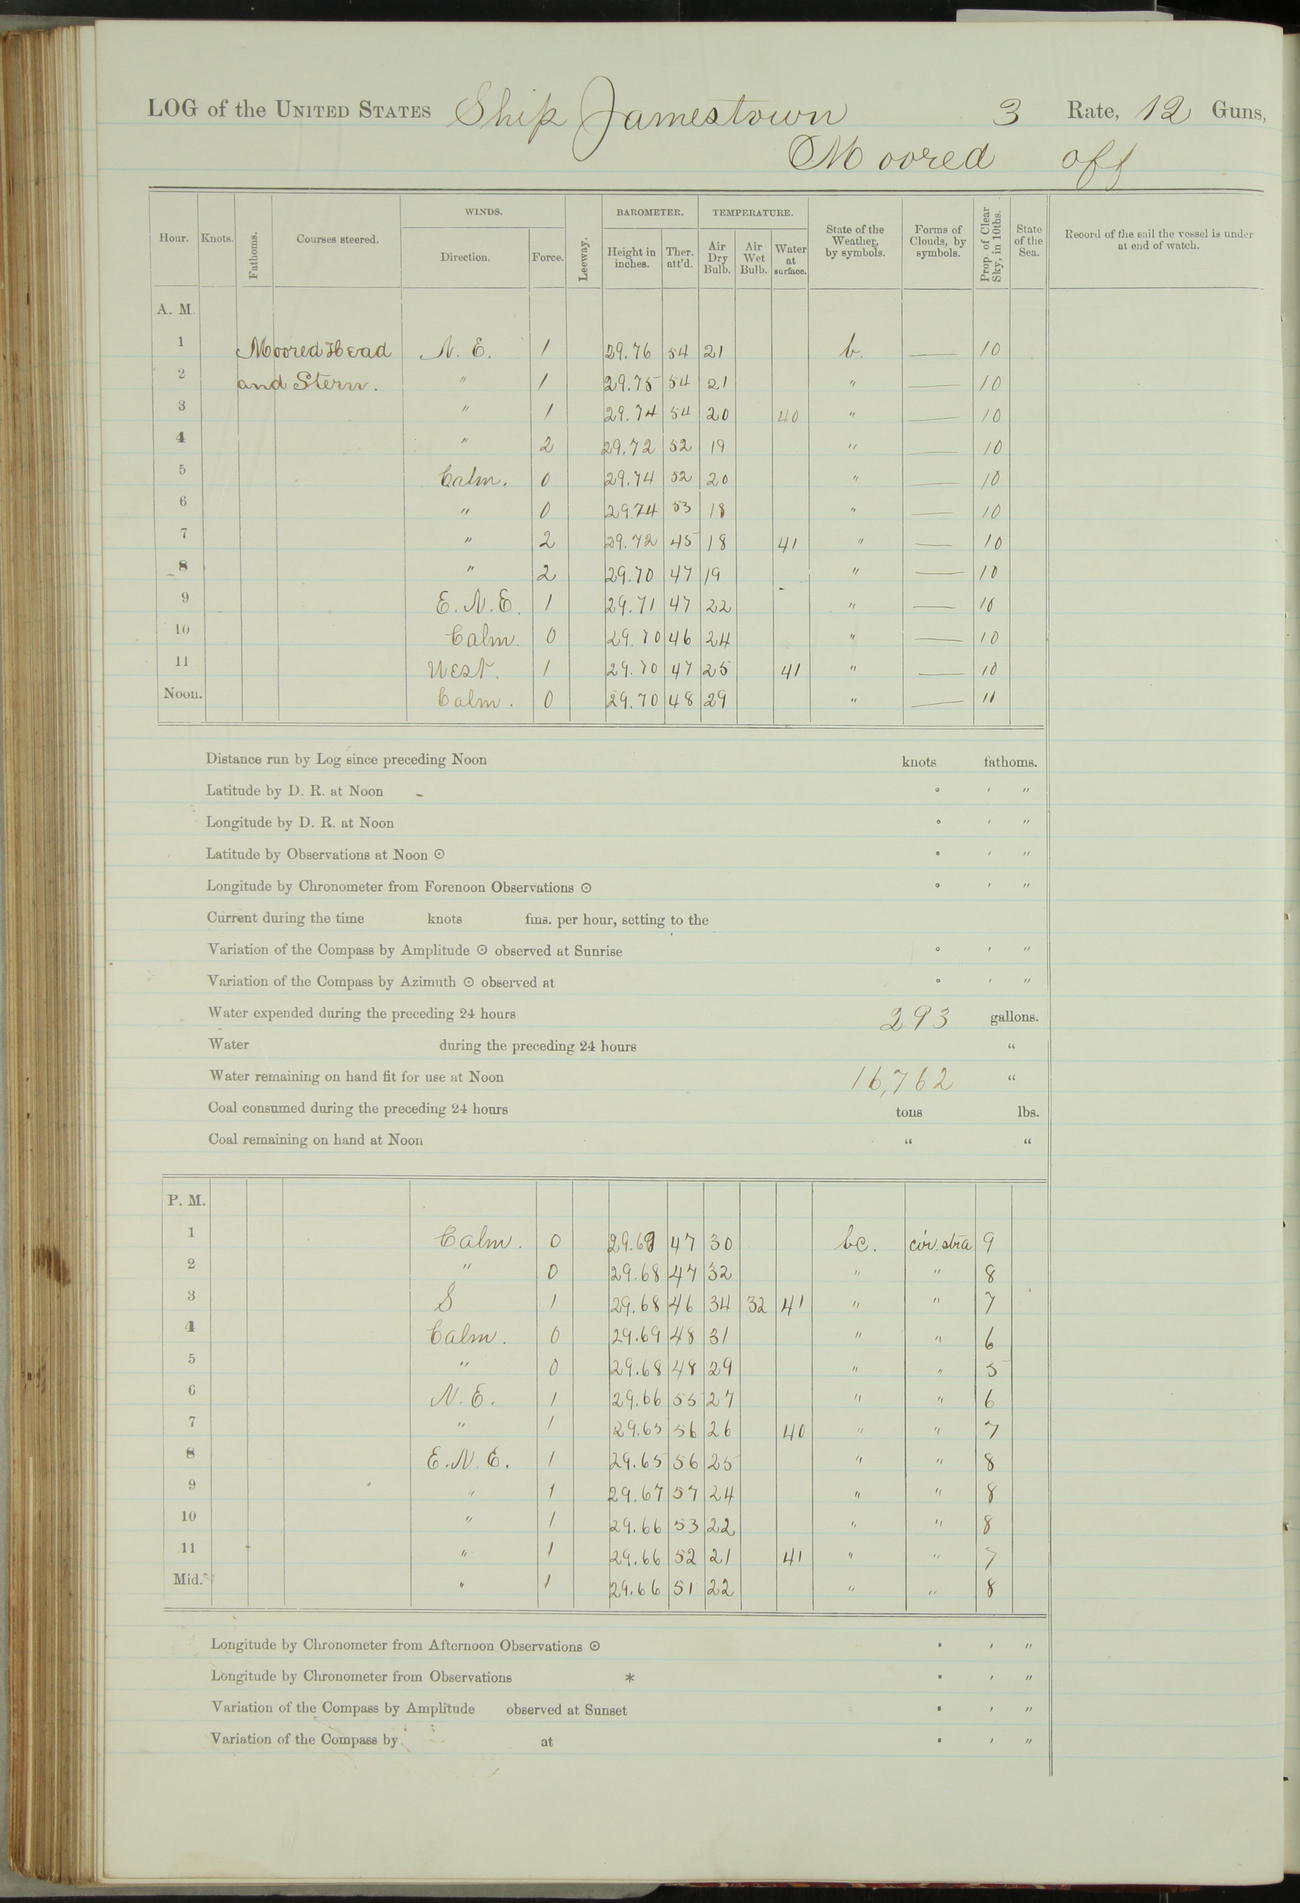 LOG of the UNITED STATES Ship Jamestown 3 Rate, 12 Guns,
Moored off
Hour. Knots. Fathoms. Courses steered. WINDS. Direction. Force. Leeway. BAROMETER. Height in inches. Ther. att'd. TEMPERATURE. Air Dry Bulb. Air Wet Bulb. Water at surface. State of the Weather, by symbols. Forms of Clouds, by symbols. Prop. of Clear Sky, in 10ths. State of the Sea. Record of the sail the vessel is under at end of watch.
A. M.
1 Moored Head N. E. 1 29.76 54 21 b. — 10
2 and Stern. " 1 29.75 54 21 " — 10
3 " 1 29.74 54 20 40 " — 10
4 " 2 29.72 52 19 " — 10
5 Calm. 0 29.74 52 20 " — 10
6 " 0 29.74 53 18 " — 10
7 " 2 29.72 45 18 41 " — 10
8 " 2 29.70 47 19 " — 10
9 E. N. E. 1 29.71 47 22 " — 10
10 Calm. 0 29.70 46 24 " — 10
11 West. 1 29.70 47 25 41 " — 10
Noon. Calm. 0 29.70 48 29 " — "
Distance run by Log since preceding Noon knots fathoms.
Latitude by D. R. at Noon ° ′ ″
Longitude by D. R. at Noon ° ′ ″
Latitude by Observations at Noon ⊙ ° ′ ″
Longitude by Chronometer from Forenoon Observations ⊙ ° ′ ″
Current during the time knots fms. per hour, setting to the
Variation of the Compass by Amplitude ⊙ observed at Sunrise ° ′ ″
Variation of the Compass by Azimuth ⊙ observed at ° ′ ″
Water expended during the preceding 24 hours 293 gallons.
Water during the preceding 24 hours "
Water remaining on hand fit for use at Noon 16,762 "
Coal consumed during the preceding 24 hours tons lbs.
Coal remaining on hand at Noon " "
P. M.
1 Calm. 0 29.68 47 30 bc. cir. stra 9
2 " 0 29.68 47 32 " " 8
3 S 1 29.68 46 34 32 41 " " 7
4 Calm. 0 29.69 48 31 " " 6
5 " 0 29.68 48 29 " " 5
6 N. E. 1 29.66 55 27 " " 6
7 " 1 29.65 56 26 40 " " 7
8 E. N. E. 1 29.65 56 25 " " 8
9 " 1 29.67 57 24 " " 8
10 " 1 29.66 53 22 " " 8
11 " 1 29.66 52 21 41 " " 7
Mid. " 1 29.66 51 22 " " 8
Longitude by Chronometer from Afternoon Observations ⊙ ° ′ ″
Longitude by Chronometer from Observations * ° ′ ″
Variation of the Compass by Amplitude observed at Sunset ° ′ ″
Variation of the Compass by at ° ′ ″